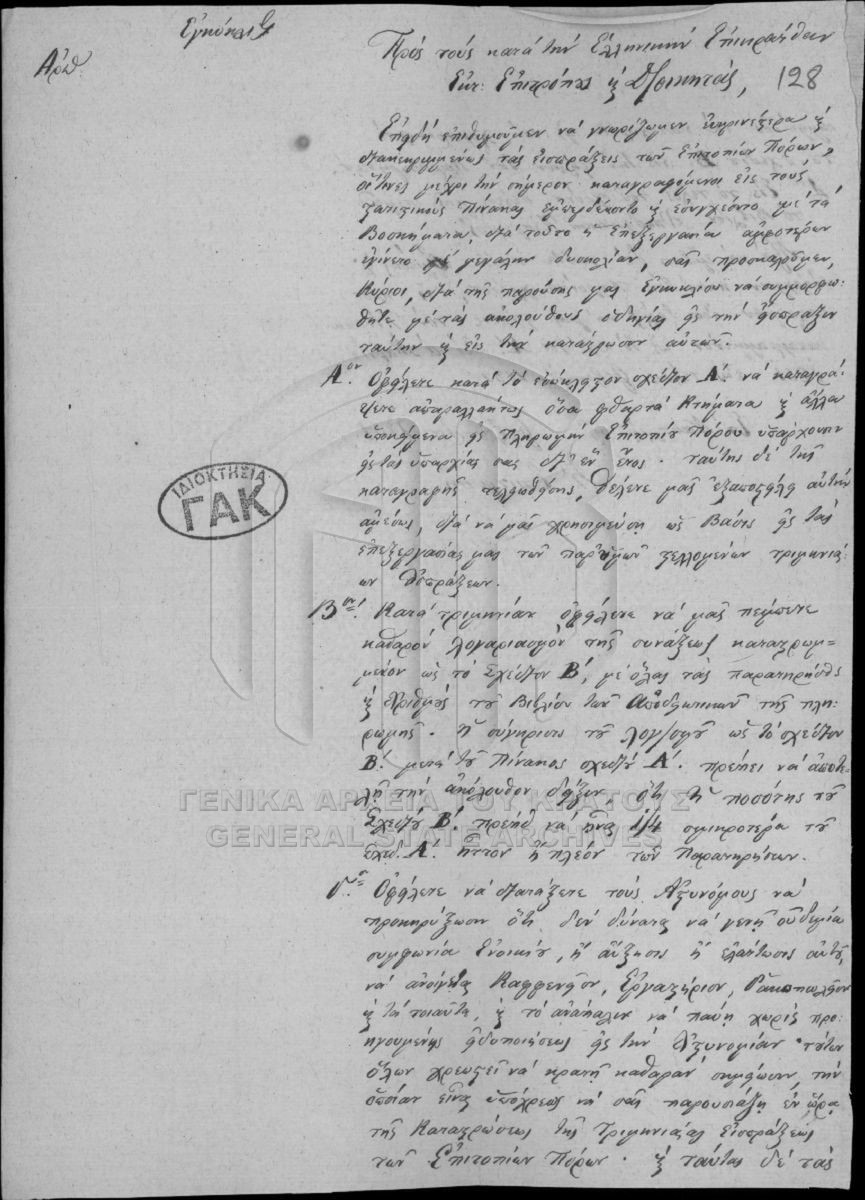 Ἐγκύκλιος
Ἀριθ.
Πρὸς τοὺς κατὰ τὴν Ἑλληνικὴν Ἐπικράτειαν
Ἐκτ: Ἐπιτρόπους καὶ Διοικητάς, 128
Ἐπειδὴ ἐπιθυμοῦμεν νὰ γνωρίζωμεν εὐκρινέστερα καὶ
διακεκριμμένως τὰς εἰσπράξεις τῶν Ἐπιτοπίων Πόρων,
οἵτινες μέχρι τὴν σήμερον καταγραφόμενοι εἰς τοὺς
Πίνακας ἐμπερδεύοντο καὶ ἐσυγχέοντο μὲ τὰ
Βοσκήματα, διὰ τοῦτο ἡ ἐπεξεργασία ἀμφοτέρων
ἐγίνετο μὲ μεγάλην δυσκολίαν, σᾶς προσκαλοῦμεν,
Κύριοι, διὰ τῆς παρούσης μας ἐγκυκλίου νὰ συμμορφω-
θῆτε μὲ τὰς ἀκολούθους ὁδηγίας εἰς τὴν εἴσπραξιν
ταύτην καὶ εἰς τὴν κατάστρωσιν αὐτῶν.
Αον. Ὀφείλετε κατὰ τὸ ἐσώκλειστον σχέδιον Α΄. νὰ καταγρά-
ψετε ἀπαραλλάκτως ὅσα φθαρτὰ Κτήματα καὶ ἄλλα
ὑποκείμενα εἰς Πληρωμὴν Ἐπιτοπίου Πόρου ὑπάρχουσιν
εἰς τὰς ἐπαρχίας σας δι' ἓν ἔτος. ταύτης δὲ τῆς
καταγραφῆς τελειωθείσης, θέλετε μᾶς ἐξαποστείλει αὐτὴν
ἀμέσως, διὰ νὰ μᾶς χρησιμεύσῃ ὡς Βάσις εἰς τὰς
ἐπεξεργασίας μας τῶν παρ' ὑμῶν στελλομένων τριμηνιαί-
ων Εἰσπράξεων.
Βον! Κατὰ τριμηνίαν ὀφείλετε νὰ μᾶς πέμπετε
καθαρὸν λογαριασμὸν τῆς συνάξεως κατεστρωμ-
μένον ὡς τὸ Σχέδιον Β΄, μὲ ὅλας τὰς παρατηρήσεις
καὶ Ἀριθμοὺς τοῦ Βιβλίου τῶν Ἀποδεικτικῶν τῆς πλη-
ρωμῆς. ἡ σύγκρισις τοῦ λογ/σμοῦ ὡς τὸ σχέδιον
Β΄. μετὰ τοῦ Πίνακος σχεδίου Α΄. πρέπει νὰ ἀποτε-
λῇ τὴν ἀκόλουθον δεῖξιν, ὅτι ἡ ποσότης τοῦ
Σχεδίου Β΄. πρέπει νὰ ἦναι 1/4 σμικροτέρα τοῦ
σχεδ. Α΄. ἧττον ἢ πλέον τῶν Παρατηρήσεων.
Γον. Ὀφείλετε νὰ διατάξετε τοὺς Ἀστυνόμους νὰ
προκηρύξωσιν ὅτι δὲν δύναται νὰ γενῇ οὐδεμία
συμφωνία Ἐνοικίου, ἢ αὔξησις ἢ ἐλάττωσις αὐτοῦ,
νὰ ἀνοίγεται Καφφενεῖον, Ἐργαστήριον, Ῥακοπωλεῖον
καὶ τὰ τοιαῦτα, καὶ τὸ ἀνάπαλιν νὰ παύῃ χωρὶς προ-
ηγουμένης εἰδοποιήσεως εἰς τὴν Ἀστυνομίαν τούτων
ὅλων χρεωστεῖ νὰ κρατῇ καθαρὰν σημείωσιν, τὴν
ὁποίαν εἶναι ὑπόχρεως νὰ σᾶς παρουσιάζῃ ἐν ὥρᾳ
τῆς Καταστρώσεως τῆς Τριμηνιαίας Εἰσπράξεως
τῶν Ἐπιτοπίων Πόρων. καὶ ταύτας δὲ τὰς
ΙΔΙΟΚΤΗΣΙΑ
ΓΑΚ
ΓΕΝΙΚΑ ΑΡΧΕΙΑ ΤΟΥ ΚΡΑΤΟΥΣ
GENERAL STATE ARCHIVES